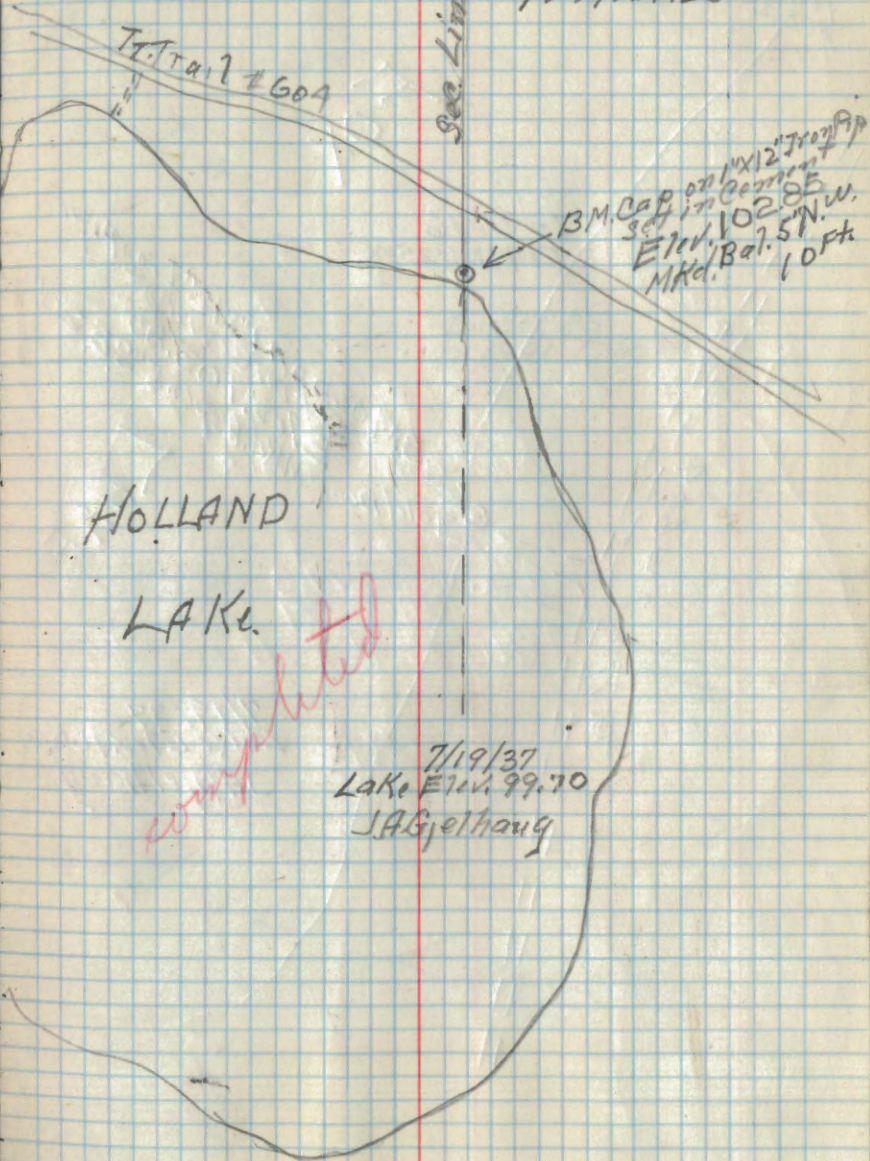 T.T.Trail #604
Sec. Lin
B.M. Cap on 1"X12" Iron Pip
set in Cement
Elev. 102.85
MKd. Bal. 5" N.W.
10 Ft.
HOLLAND
LAKe.
completed
7/19/37
Lake Elev. 99.70
J.A.Gjelhaug